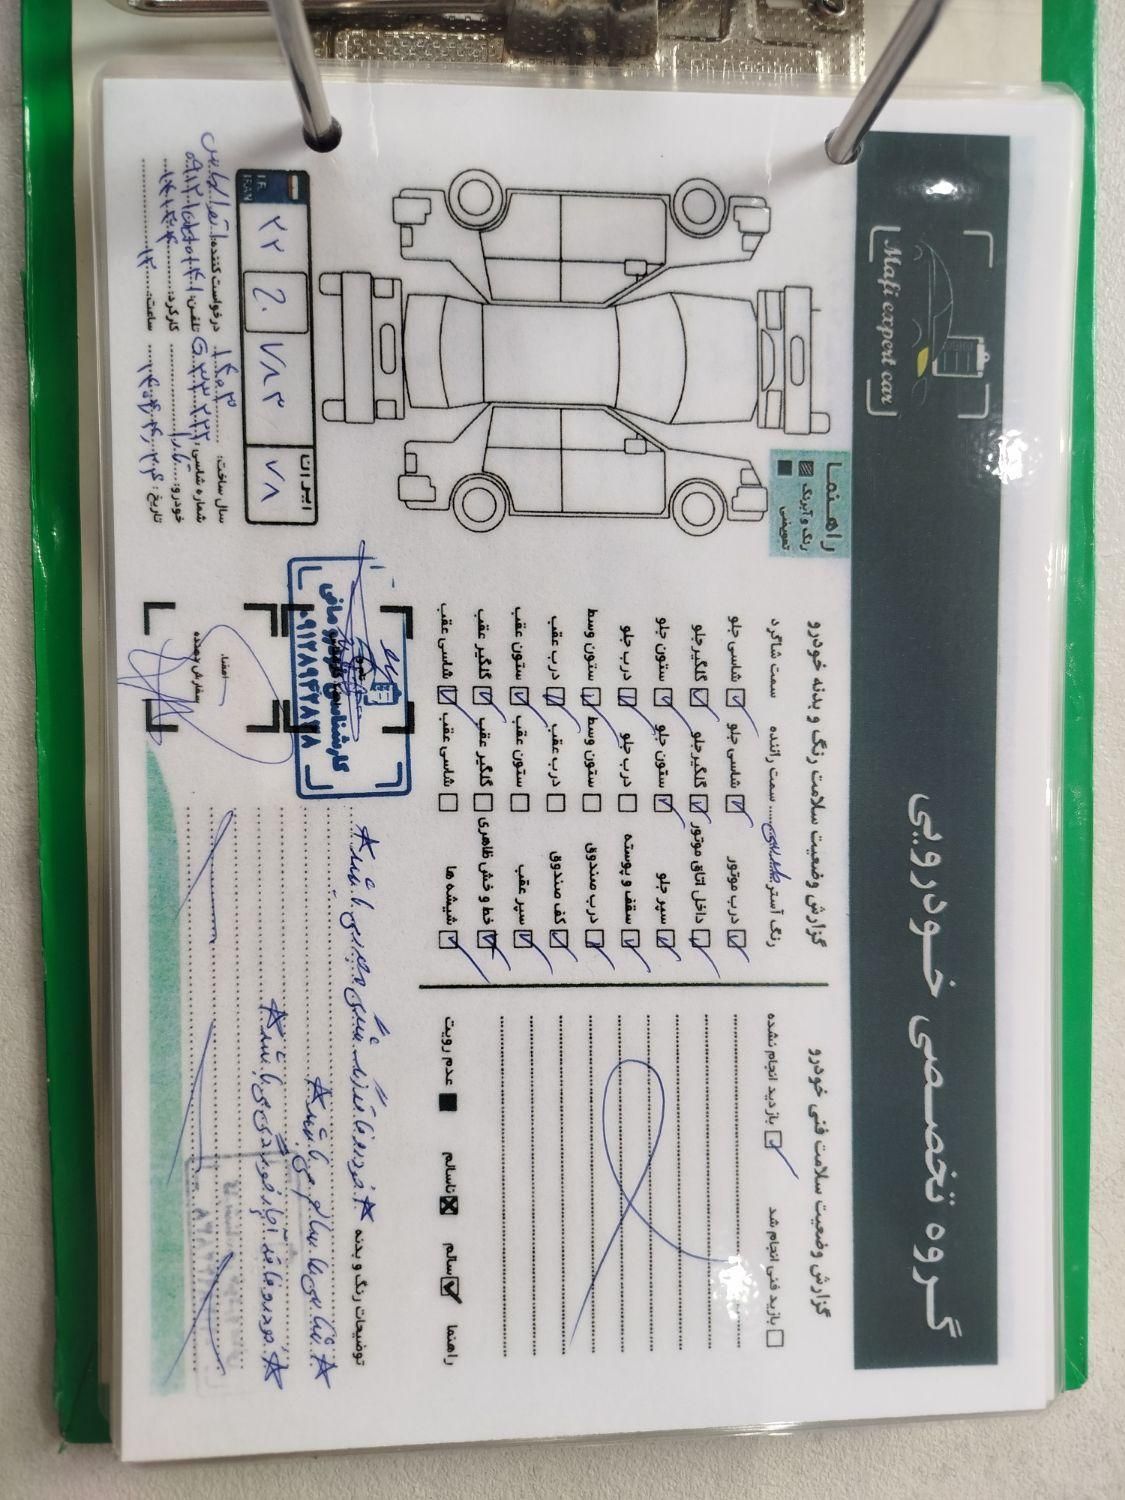 گروه تخصصی خودرویی
Mafi expert car
گزارش وضعیت سلامت فنی خودرو
بازدید فنی انجام شد
بازدید انجام نشده
گزارش وضعیت سلامت رنگ و بدنه خودرو
رنگ آستر سمت راننده سمت شاگرد
درب موتور شاسی جلو شاسی جلو
داخل اتاق موتور گلگیر جلو گلگیر جلو
سپر جلو ستون جلو ستون جلو
سقف و پوسته درب جلو درب جلو
درب صندوق ستون وسط ستون وسط
کف صندوق درب عقب درب عقب
سپر عقب ستون عقب ستون عقب
خط و خش ظاهری گلگیر عقب گلگیر عقب
شیشه ها شاسی عقب شاسی عقب
راهنما سالم ناسالم عدم رویت
راهنما
رنگ و آبرنگ
تعویض
توضیحات رنگ و بدنه
خودرو فاقد رنگ
می باشد
شاسی ها سالم می باشد
خودرو فاقد آبخوردگی می باشد
کارشناسی خودرو مافی
۰۹۱۲۸۹۴۲۸۷۸
امضاء
سفارش دهنده
I.R.
IRAN
۲۲ ۷۸۳
ایران
۷۸
سال ساخت: درخواست کننده:
شماره شاسی: تلفن:
خودرو: تارا کارکرد:
تاریخ: ساعت: ۱۲